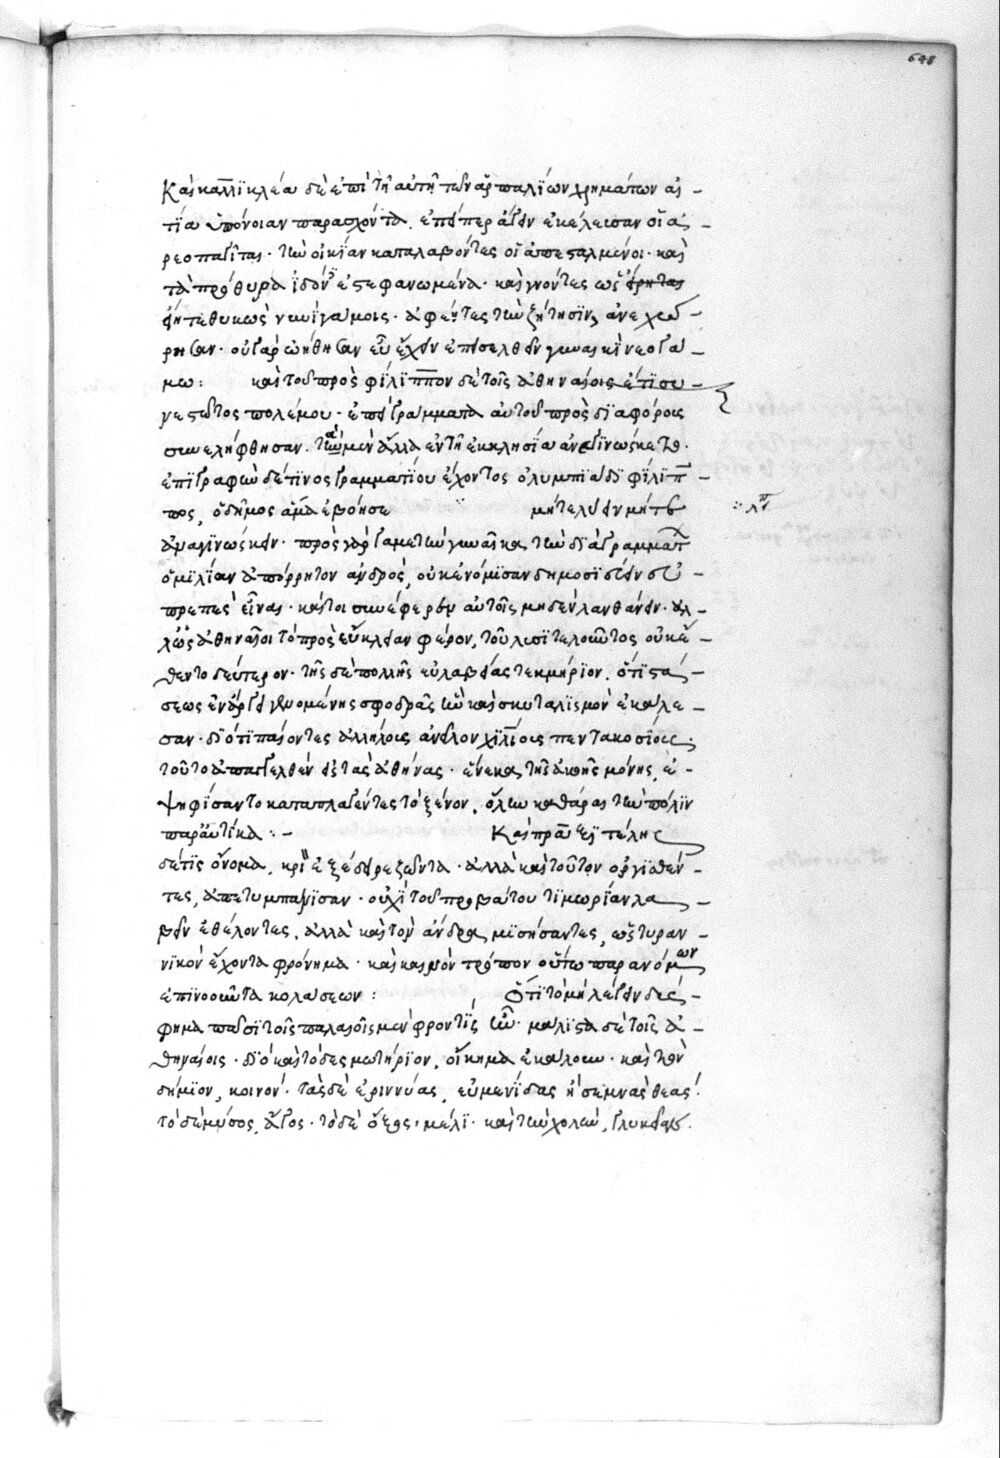 648
Καὶ καλλϊκλέα δὲ ἐπὶ τῆ αὐτῆ τῶν ἁρπαλΐων χρημάτων αἰ –
τΐα ὑπόνοιαν παρασχόντα. ἐπείπερ ἀγειν ἐκέλευσαν οἱ ἀ –
ρεοπαγῖται· τὴν οἰκίαν καταλαβόντες οἱ ἀπεσταλμένοι· καὶ
τὰ πρόθυρα ἰδόντες ἐστεφανωμένα· καὶ γνόντες ὡς
ἐν γάμοις· ἀφέντες τὴν ζήτησϊν, ἀνεχώ –
ρησαν· οὐ γὰρ ὠήθησαν εὖ ἔχειν ἐπεισελθεῖν γυναικὶ νεογά –
μω: καὶ τοῦ πρὸς φίλϊππον δὲ τοῖς ἀθηναίοις ἔτϊ συ –
νεστῶτος πολέμου· ἐπεὶ γράμματα αὐτοῦ πρὸς διαφόρους
συνελήφθησαν. τὰ μὲν ἄλλα ἐν τῆ ἐκκλησία ἀνεγϊνώσκετο.
ἐπϊγραφὴν δέ τϊνος γραμματΐου ἔχοντος ὀλυμπϊάδϊ φίλϊπ –
πος, ὁ δῆμος ἅμα ἐβόησε μήτε λύειν μήτε
ἀναγϊνώσκειν· πρὸς γὰρ γαμετὴν γυναῖκα, τὴν διὰ γραμμάτ
ὁμιλίαν ἀπόρρητον ἀνδρὸς, οὐκ ἐνόμϊσαν δημοσϊεύειν
πρεπὲς εἶναι· καίτοι συνέφερεν αὐτοῖς μηδὲν λανθάνειν· ἀλ –
λ' ὅμως ἀθηναῖοι τὸ πρὸς εὔκλειαν φέρον, τοῦ λυσϊτελοῦντος οὐκ ἔ –
θεντο δεύτερον· τῆς δὲ πολλῆς εὐλαβείας τεκμήρϊον. ὅτϊ στά –
σεως ἐν ἄργει γενομένης σφοδρᾶς ἣν καὶ σκυταλϊσμὸν ἐκάλε –
σαν· δϊότϊ παίοντες ἀλλήλους ἀνεῖλον χϊλΐους πεντακοσΐους·
τοῦτο ἀπαγγελθὲν εἰς τὰς ἀθήνας· ἕνεκα τῆς ἀκοῆς μόνης, ἐ –
ψηφΐσαντο καταπλαγέντες τὸ ξένον. ὅλην καθάραι τὴν πόλϊν
παραυτΐκα: – Καὶ πραξϊτέλης
δέ τϊς ὄνομα, κριὸν ἐξέδειρε ζῶντα· ἀλλὰ καὶ τοῦτον ὀργισθέν –
τες, ἀπετυμπάνϊσαν· οὐχὶ τοῦ προβάτου τϊμωρίαν λα –
βεῖν ἐθέλοντες, ἀλλὰ καὶ τὸν ἄνδρα μϊσήσαντες, ὡς τυραν –
νϊκὸν ἔχοντα φρόνημα· καὶ καινὸν τρόπον οὕτω παρανόμων
ἐπϊνοοῦντα κολάσεων: Ὅτϊ τὸ μὴ λέγειν δύς –
φημα πᾶσϊ τοῖς παλαιοῖς μὲν φροντὶς ἦν· μάλϊστα δὲ τοῖς ἀ –
θηναίοις· δϊὸ καὶ τὸ δεσμωτήρϊον, οἴκημα ἐκάλουν· καὶ τὸν
δήμϊον, κοινόν· τὰς δὲ ἐριννύας, εὐμενΐδας ἢ σεμνὰς θεάς·
τὸ δὲ μύσος, ἄγος· τὸ δὲ ὄξος, μέλϊ· καὶ τὴν χολὴν, γλυκεῖαν.